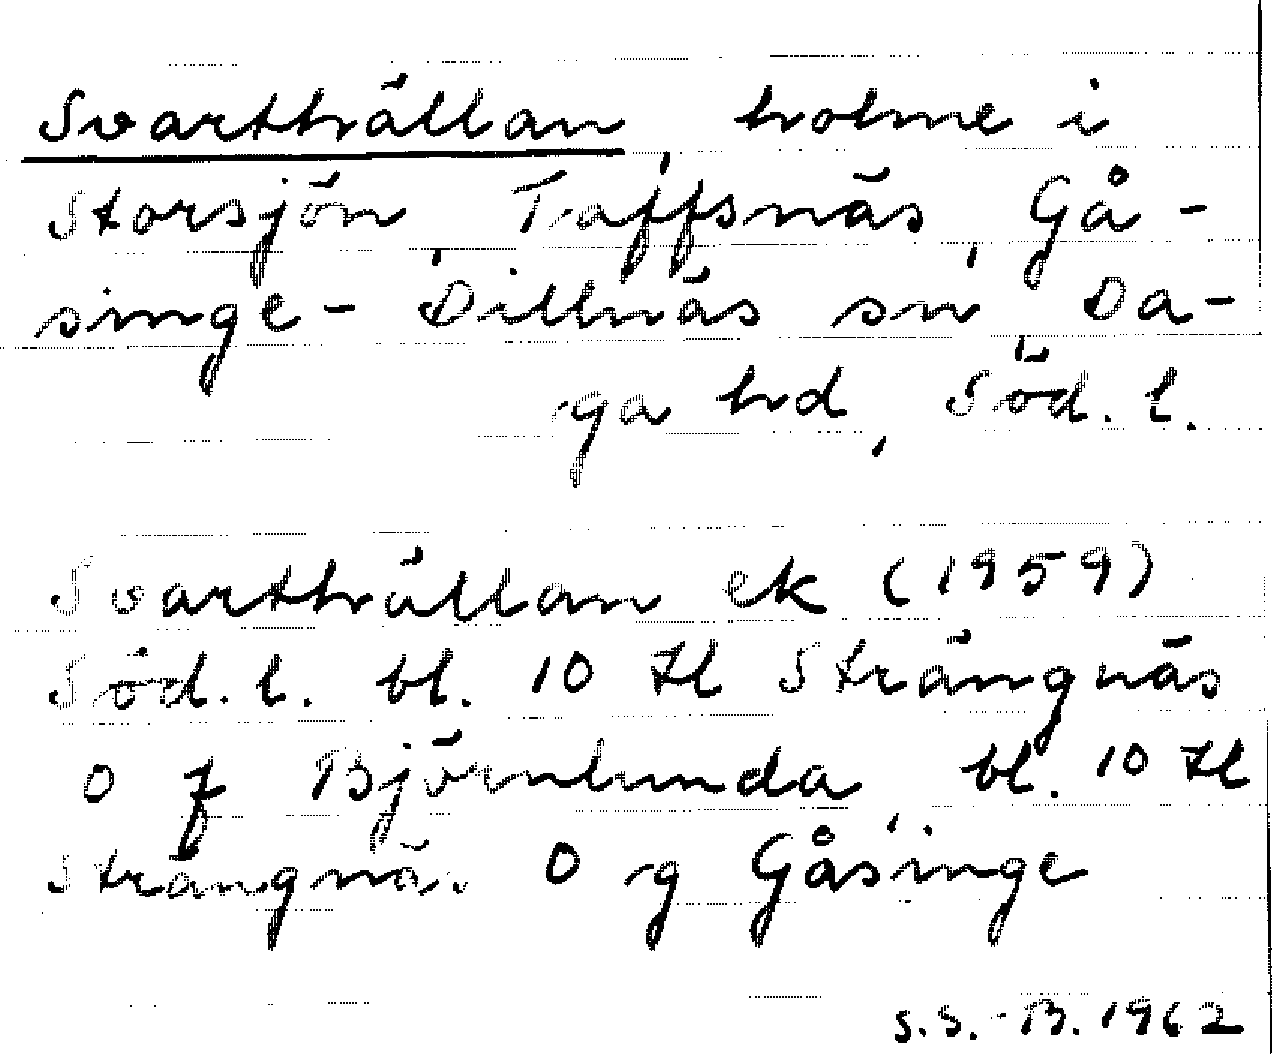 Svarthällan, holme i
Storsjön, Taffsnäs, Gå-
singe-Dillnäs sn, Da-
ga hd, Söd. l.
Svarthällan ek (1959)
Söd. l. bl. 10 tl Strängnäs
O f Björnlunda, bl. 10 tl
Strängnäs O g Gåsinge
S.S.-B. 1962